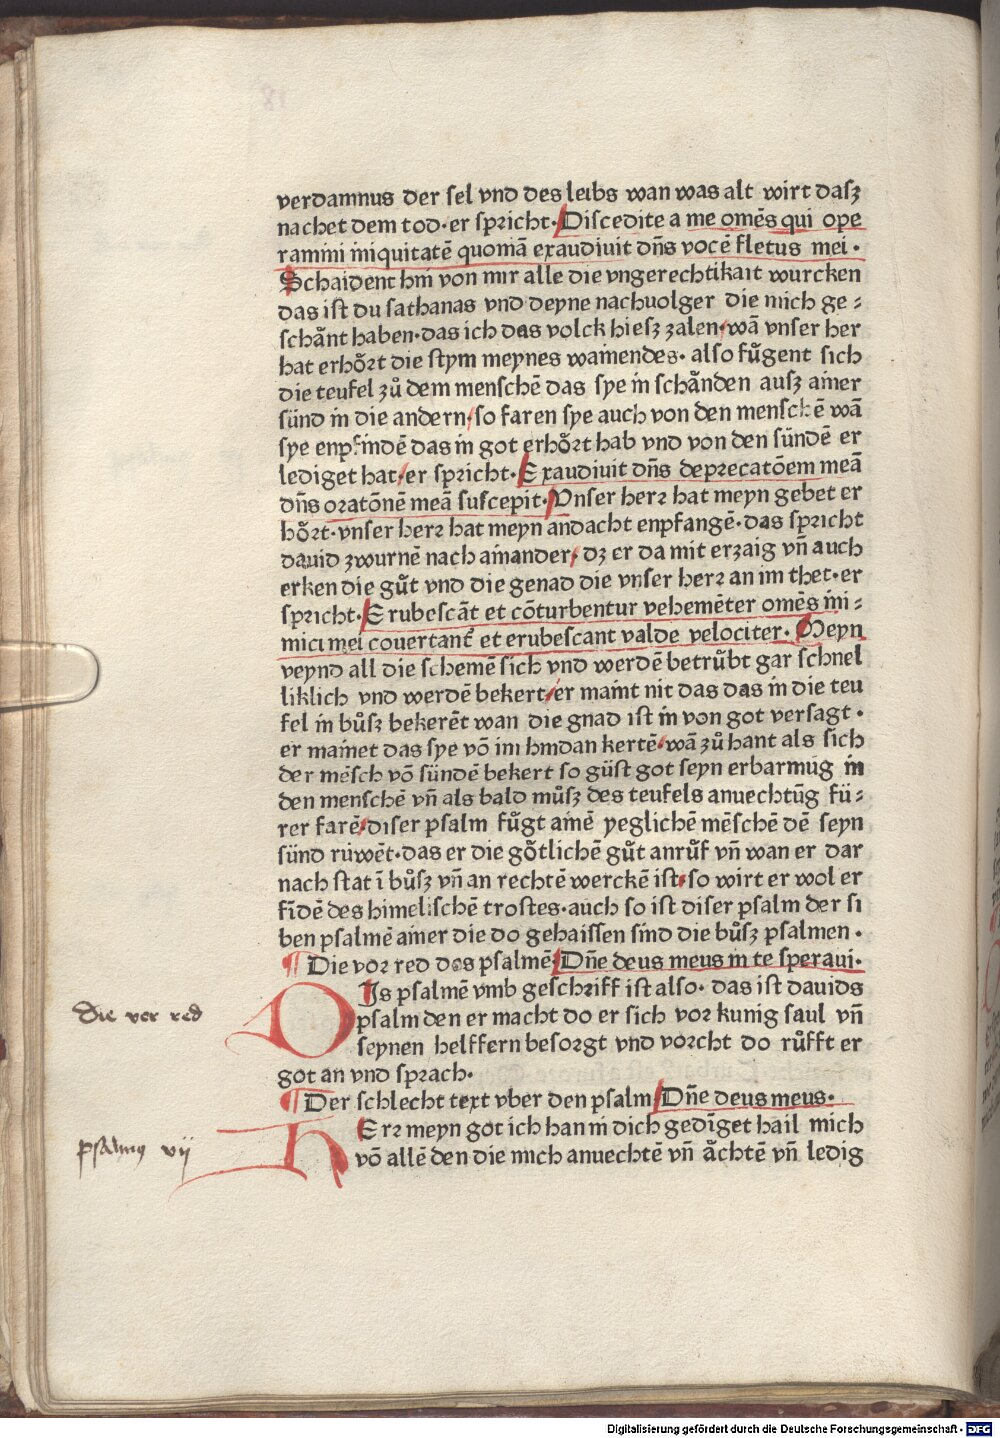 verdamnus der sel vnd des leibs wan was alt wirt dasz
nachet dem tod·er spricht·Discedite a me omēs qui ope
ramini iniquitatē quoniā exaudiuit dn̄s vocē fletus mei·
Schaident hin von mir alle die vngerechtikait wurcken
das ist du sathanas vnd deyne nachuolger die mich ge⸗
schånt haben·das ich das volck hiesz zalen/wā vnser her
hat erhoͤrt die stym meynes wainendes· also fuͤgent sich
die teufel zuͦ dem menschē das sye in schånden ausz ainer
sünd in die andern/so faren sye auch von den menschē wā
sye enpfindē das in got erhoͤrt hab vnd von den sündē er
lediget hat/er spricht·Exaudiuit dn̄s deprecatōem meā
dn̄s oratōnē meā suscepit·Vnser herr hat meyn gebet er
hoͤrt·vnser herr hat meyn andacht enpfangē·das spricht
dauid zwurnē nach ainander/ dz er da mit erzaig vn̄ auch
erken die guͤt vnd die genad die vnser herr an im thet·er
spricht·Erubescāt et cōturbentur vehemēter omēs ini⸗
mici mei couertant̄ et erubescant valde velociter· Meyn
veynd all die schemē sich vnd werdē betruͤbt gar schnel
liklich vnd werdē bekert/er maint nit das das in die teu
fel in buͦsz bekerēt wan die gnad ist in von got versagt·
er mainet das sye vō im hindan kertē/wā zuͦ hant als sich
der mēsch vō sündē bekert so güst got seyn erbarmūg in
den menschē vn̄ als bald muͦsz des teufels anuechtūg fü⸗
rer farē/diser psalm fuͤgt ainē yeglichē mēschē dē seyn
sünd rüwēt·das er die goͤtlichē guͤt anruͤf vn̄ wan er dar
nach stat ī buͦsz vn̄ an rechtē werckē ist/so wirt er wol er
fīdē des himelischē trostes·auch so ist diser psalm der si
ben psalmē ainer die do gehaissen sind die buͦsz psalmen·
¶ Die vor red des psalmē/Dn̄e deus meus in te speraui·
DIs psalmē vmb geschriff ist also· das ist dauids
psalm den er macht do er sich vor kunig saul vn̄
seynen helffern besorgt vnd vorcht do ruͦfft er
got an vnd sprach·
Die vor red
¶ Der schlecht text vber den psalm/Dn̄e deus meus·
HErr meyn got ich han in dich gedīget hail mich
vō allē den die mich anuechtē vn̄ åchtē vn̄ ledig
psalmus vij
Digitalisierung gefördert durch die Deutsche Forschungsgemeinschaft - DFG